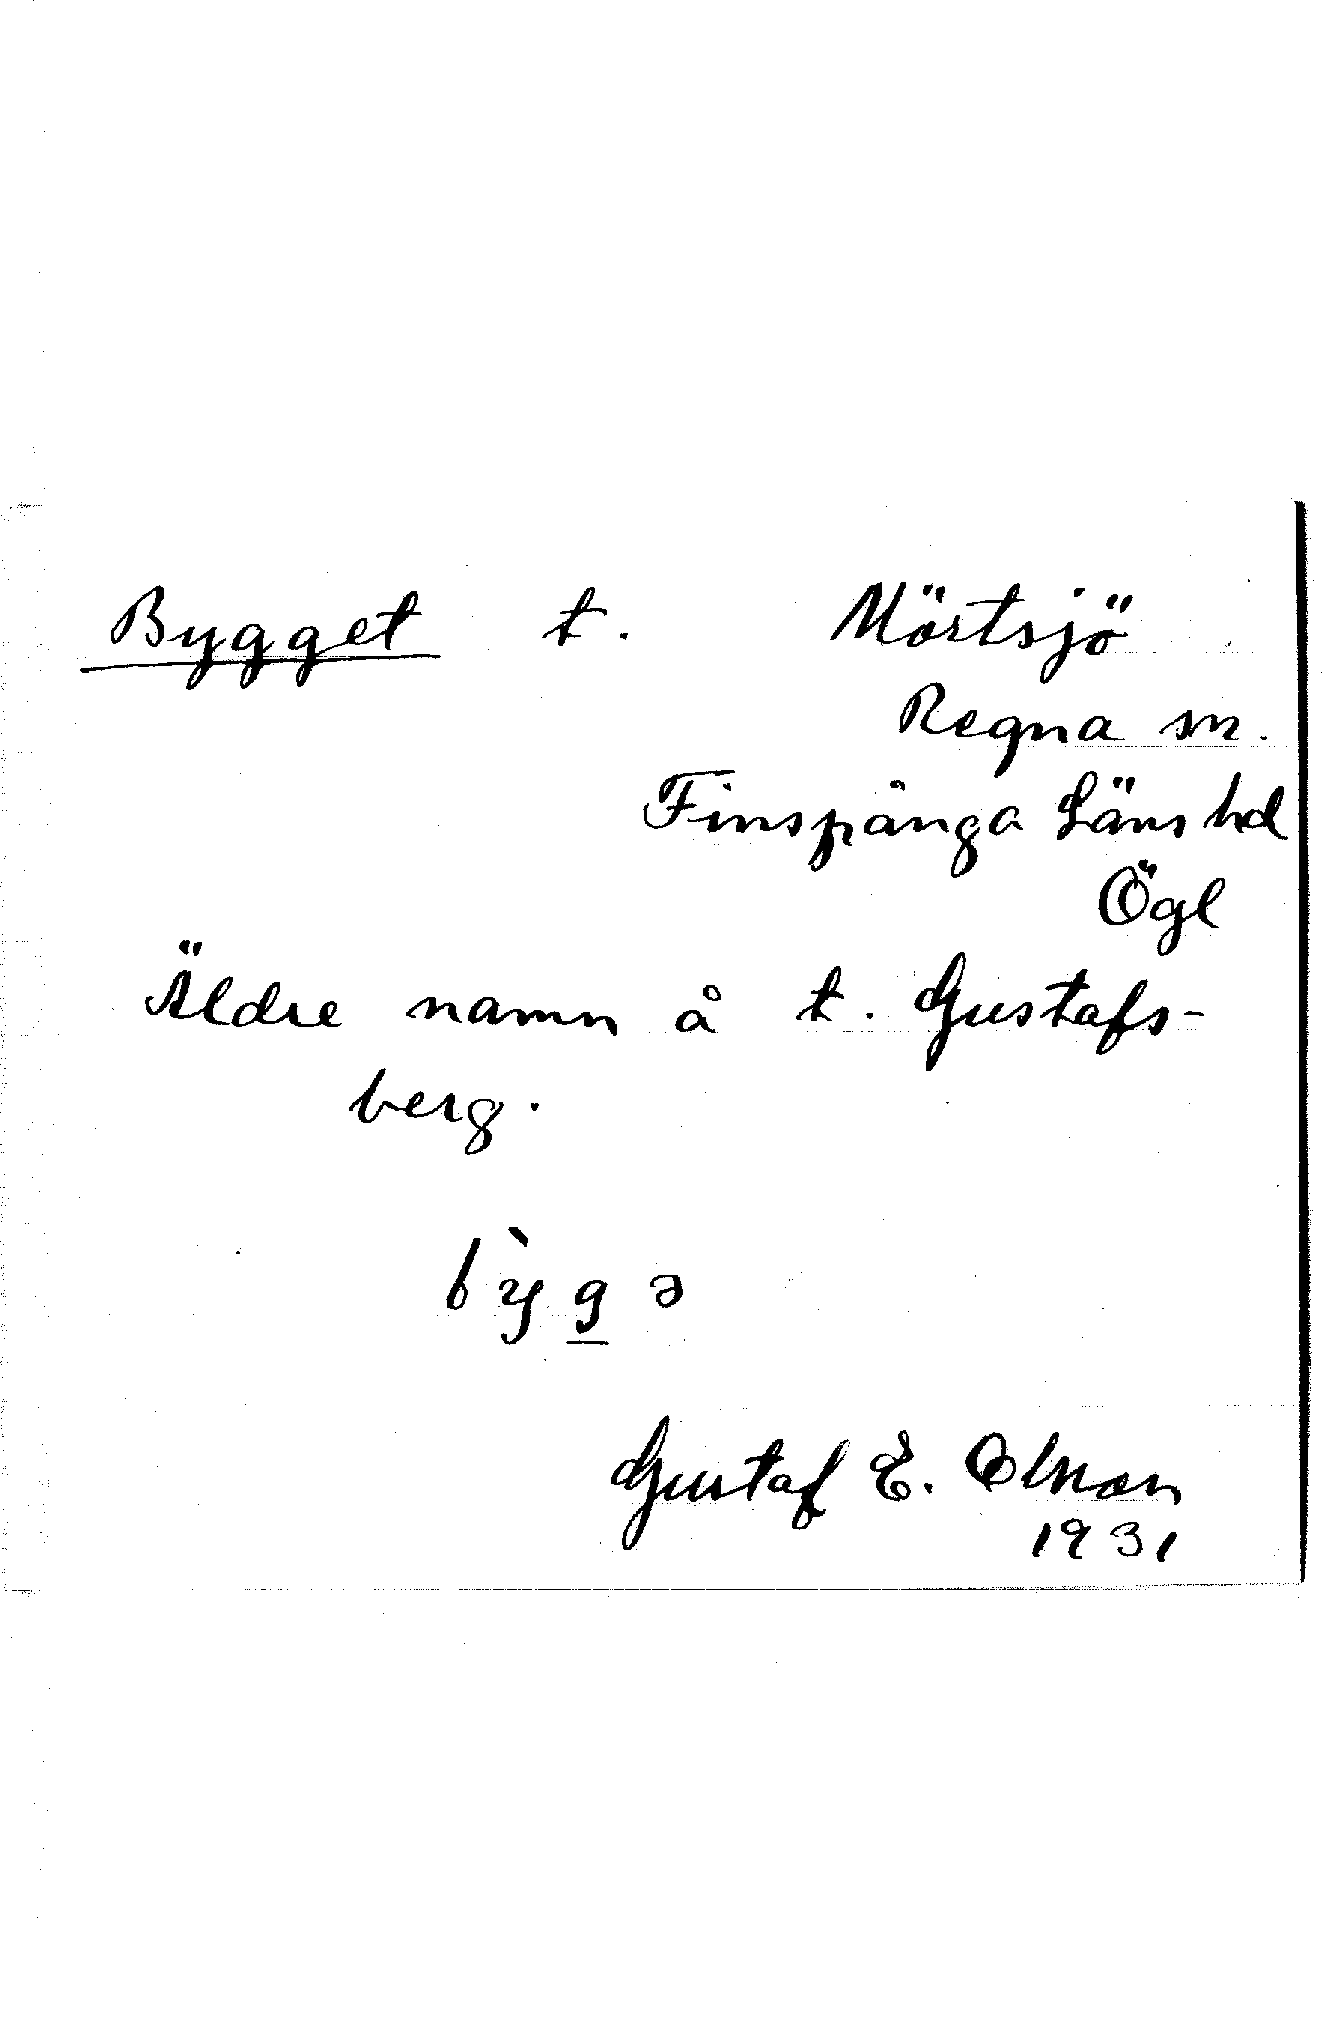 Bygget t. Mörtsjö
Regna sn.
Finspånga Läns hd
Ögl
Äldre namn å t. Gustafs-
berg.
bỳgə
Gustaf E. Olsson
1931